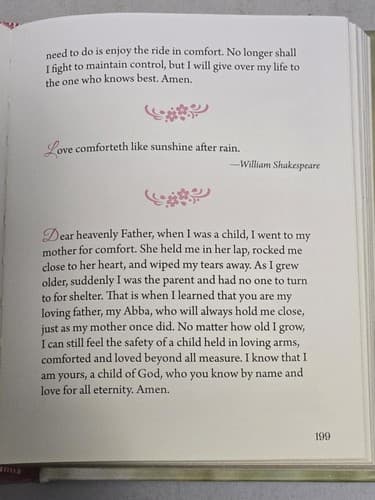 need to do is enjoy the ride in comfort. No longer shall
I fight to maintain control, but I will give over my life to
the one who knows best. Amen.
Love comforteth like sunshine after rain.
—William Shakespeare
Dear heavenly Father, when I was a child, I went to my
mother for comfort. She held me in her lap, rocked me
close to her heart, and wiped my tears away. As I grew
older, suddenly I was the parent and had no one to turn
to for shelter. That is when I learned that you are my
loving father, my Abba, who will always hold me close,
just as my mother once did. No matter how old I grow,
I can still feel the safety of a child held in loving arms,
comforted and loved beyond all measure. I know that I
am yours, a child of God, who you know by name and
love for all eternity. Amen.
199